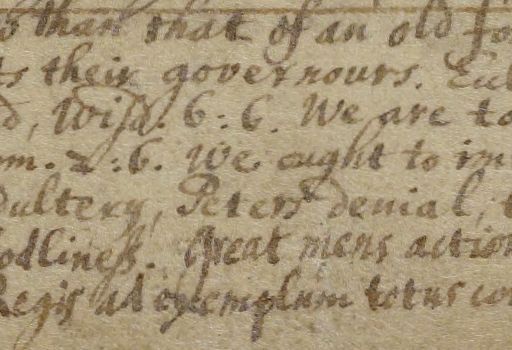 than that of an old
their governours.
Wisd. 6:6. We are to
2:6. We ought to
dultery, Peters denial,
odliness. Great mens action
Regis ad exemplum totus